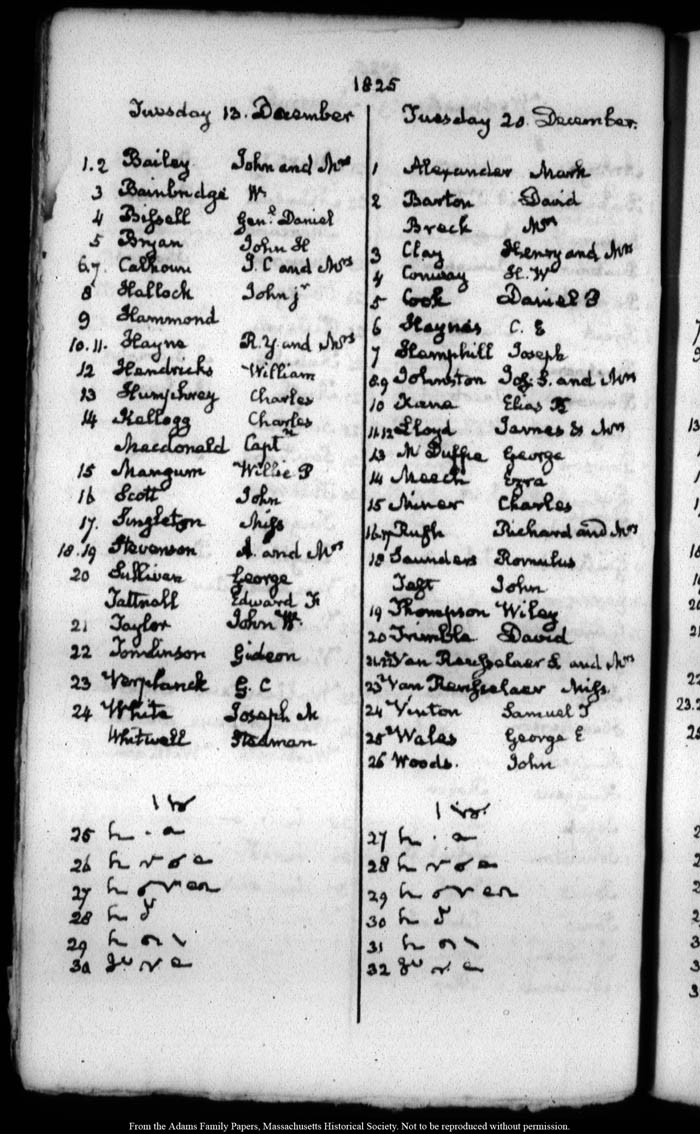 1825
Tuesday 13. December
1.2 Bailey John and Mrs
3 Bainbridge W
4 Bissell Genl. Daniel
5 Bryan John H
6.7. Calhoun J. C and Mrs
8 Hallock John jr
9 Hammond
10.11. Hayne R. Y. and Mrs
12 Hendricks William
13 Humphrey Charles
14 Kellogg Charles
Macdonald Captn
15 Mangum Willie P
16 Scott John
17. Singleton Miss
18.19 Stevenson A. and Mrs
20 Sullivan George
Tattnall Edward F
21 Taylor John W.
22 Tomlinson Gideon
23 Verplanck G. C
24 White Joseph M
Whitwell Stedman
25
26
27
28
29
30
Tuesday 20. December.
1 Alexander Mark
2 Barton David
Breck Mrs
3 Clay Henry and Mrs
4 Conway H. W
5 Cook Daniel P
6 Haynes C. E
7 Hemphill Joseph
8.9 Johnston Jos. S. and Mrs
10 Kane Elias K
11.12 Lloyd James & Mrs
13 McDuffie George
14 Meech Ezra
15 Miner Charles
16.17 Rush Richard and Mrs
18 Saunders Romulus
Taft John
19 Thompson Wiley
20 Trimble David
21.22 Van Rensselaer S. and Mrs
23 Van Rensselaer Miss.
24 Vinton Samuel F
25 Wales George E
26 Woods. John
27
28
29
30
31
32
From the Adams Family Papers, Massachusetts Historical Society. Not to be reproduced without permission.